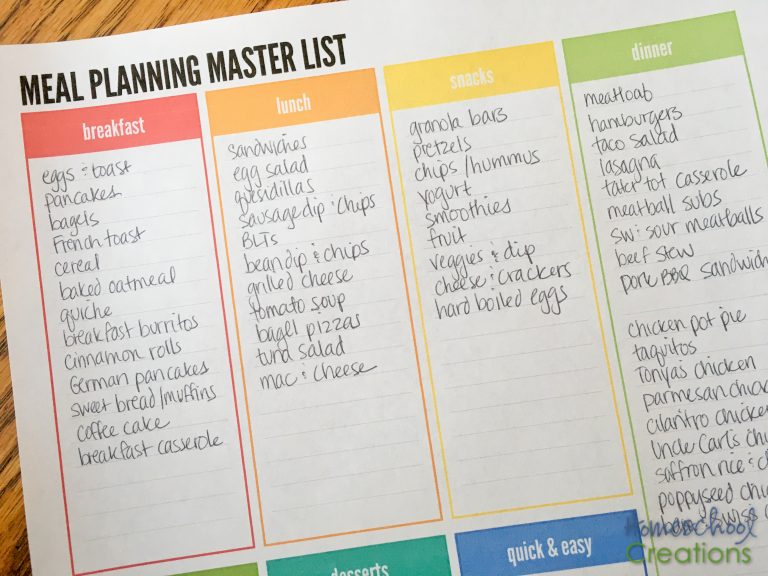 MEAL PLANNING MASTER LIST
breakfast
eggs & toast
pancakes
bagels
French toast
cereal
baked oatmeal
quiche
breakfast burritos
cinnamon rolls
German pancakes
sweet bread/muffins
coffee cake
breakfast casserole
lunch
sandwiches
egg salad
quesidillas
sausage dip & chips
BLTs
bean dip & chips
grilled cheese
tomato soup
bagel pizzas
tuna salad
mac & cheese
snacks
granola bars
pretzels
chips/hummus
yogurt
smoothies
fruit
veggies & dip
cheese & crackers
hard boiled eggs
dinner
meatloaf
hamburgers
taco salad
lasagna
tater tot casserole
meatball subs
sw & sour meatballs
beef stew
pork BBQ sandwich
chicken pot pie
taquitos
Tonyas chicken
parmesan chick
cilantro chicken
Uncle Carl's chi
saffron rice & c
poppyseed chi
desserts
quick & easy
Homeschool
Creations